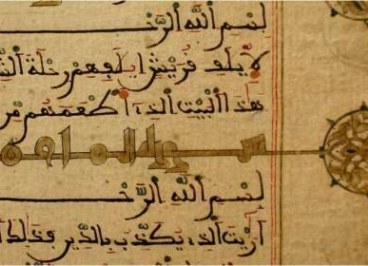 بسم الله الرحـ
لإيلف قريش إيلفهم رحلة الشـ
هذا البيت الذي أطعمهم من
سورة الماعو
بسم الله الرحـ
أريت الذي يكذب بالدين فذلك ا